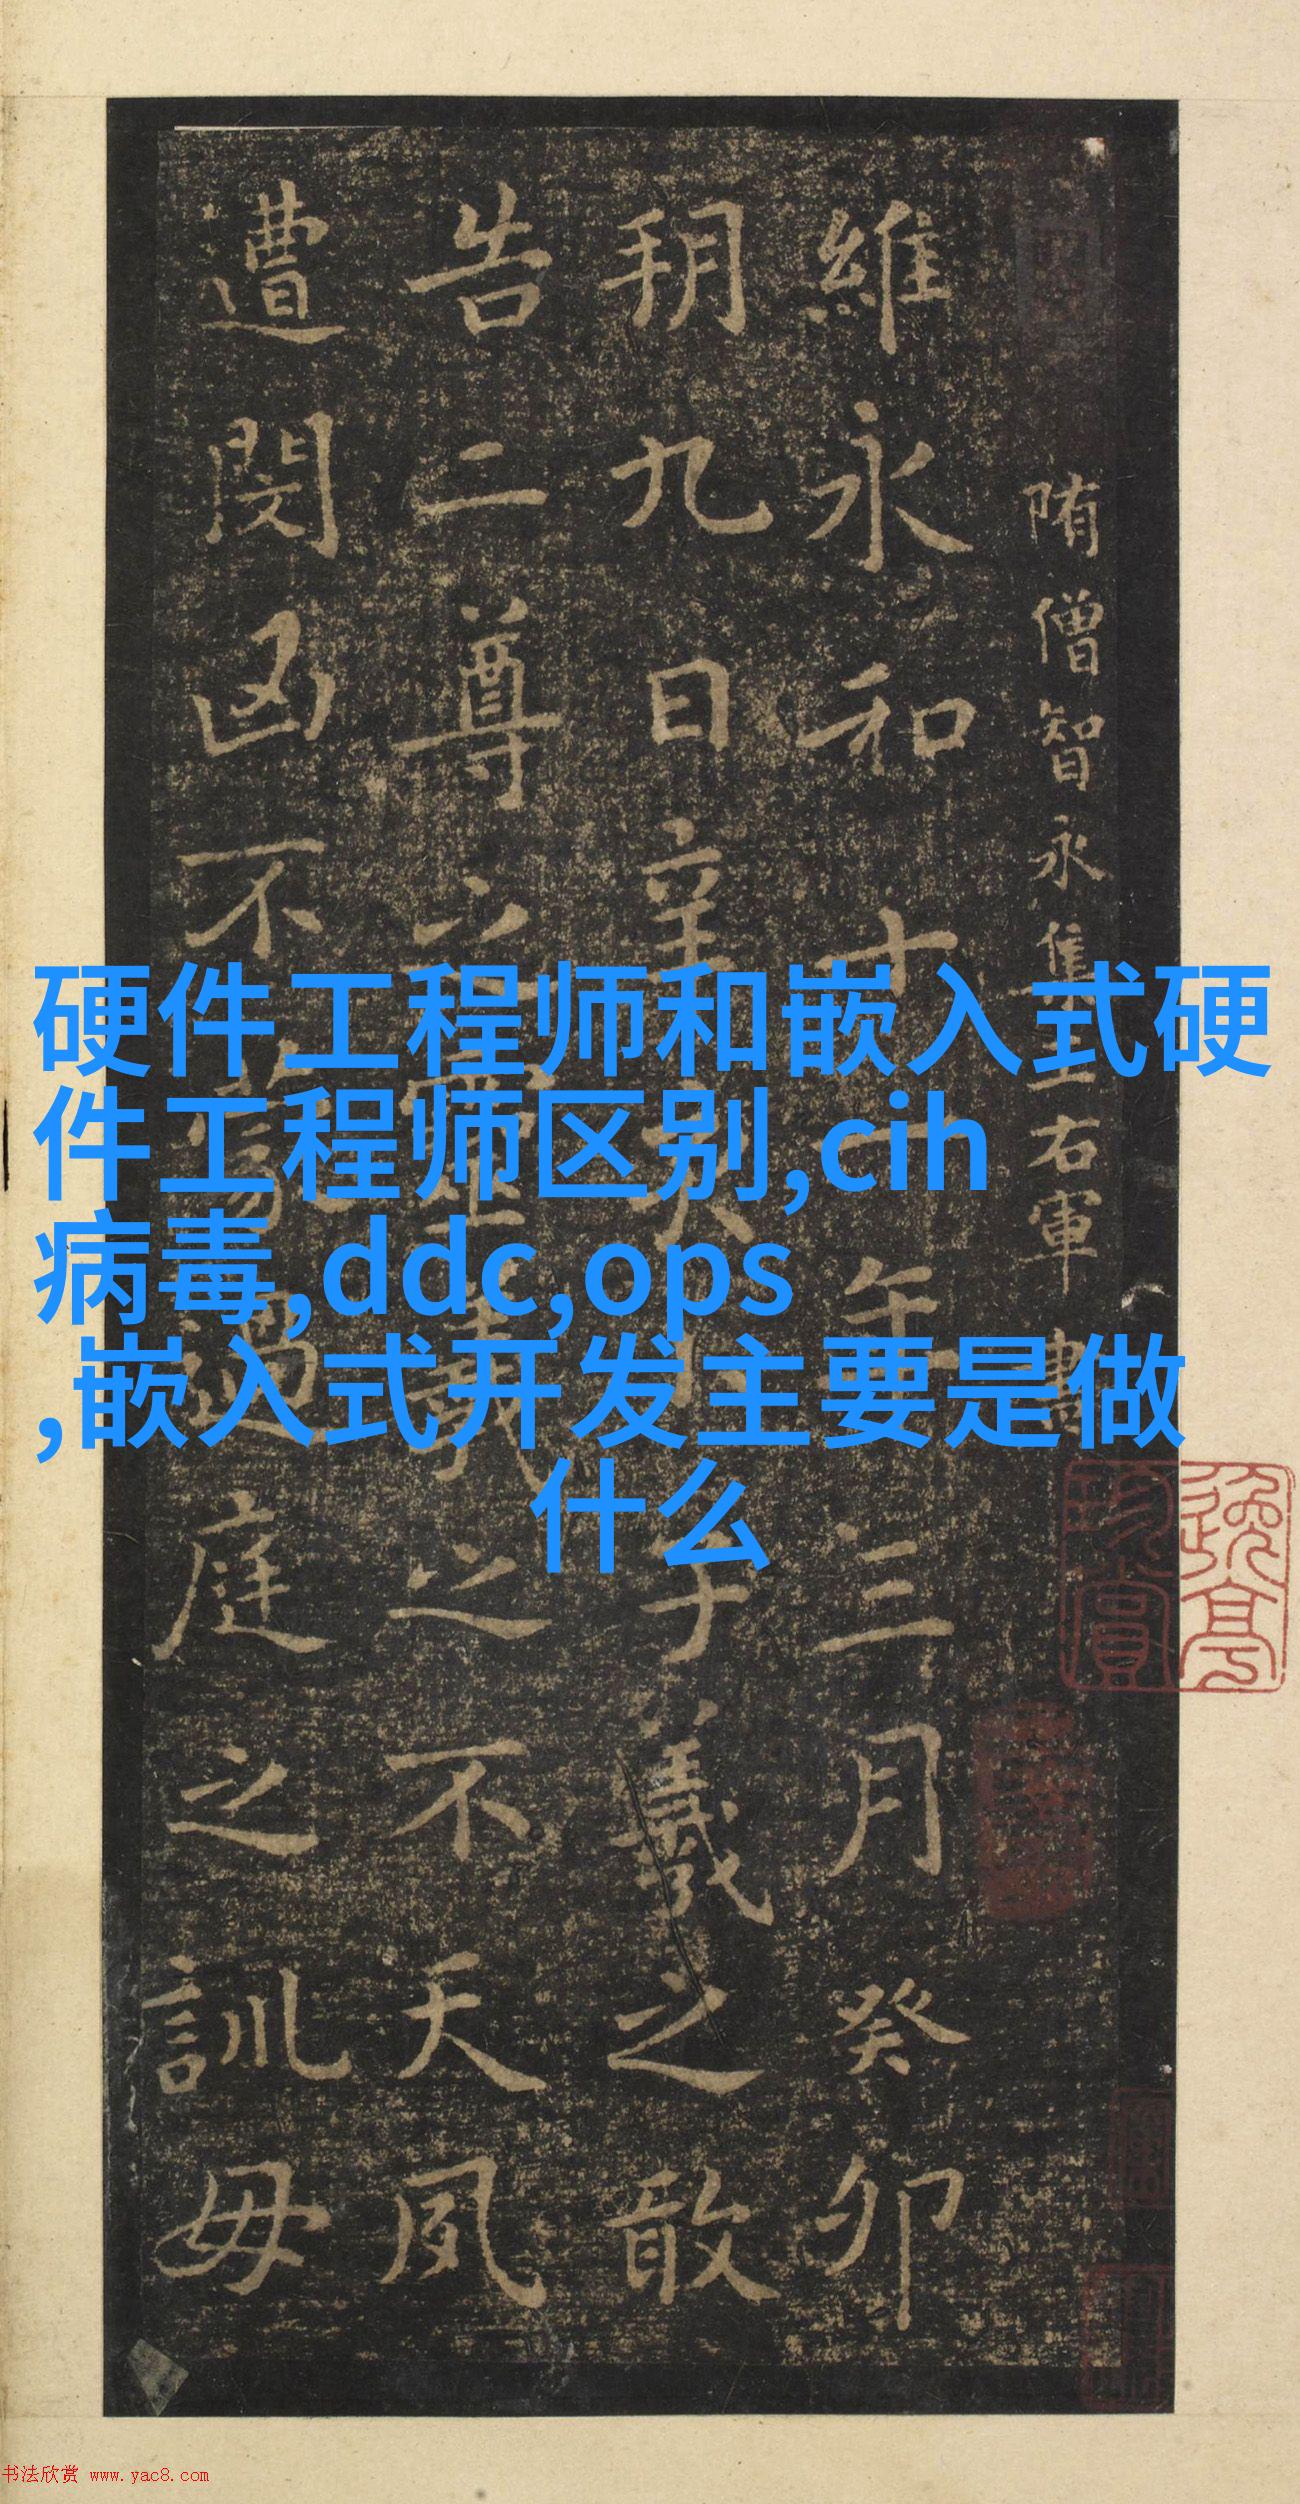 隋僧智永集王右軍書
維永和十一年三月癸卯
朔九日辛亥小子羲之敢
告二尊之靈羲之不天夙
遭閔凶不蒙過庭之訓毋
硬件工程师和嵌入式硬
件工程师区别,cih
病毒,ddc,ops
,嵌入式开发主要是做
什么
珍賞
书法欣赏 www.yac8.com